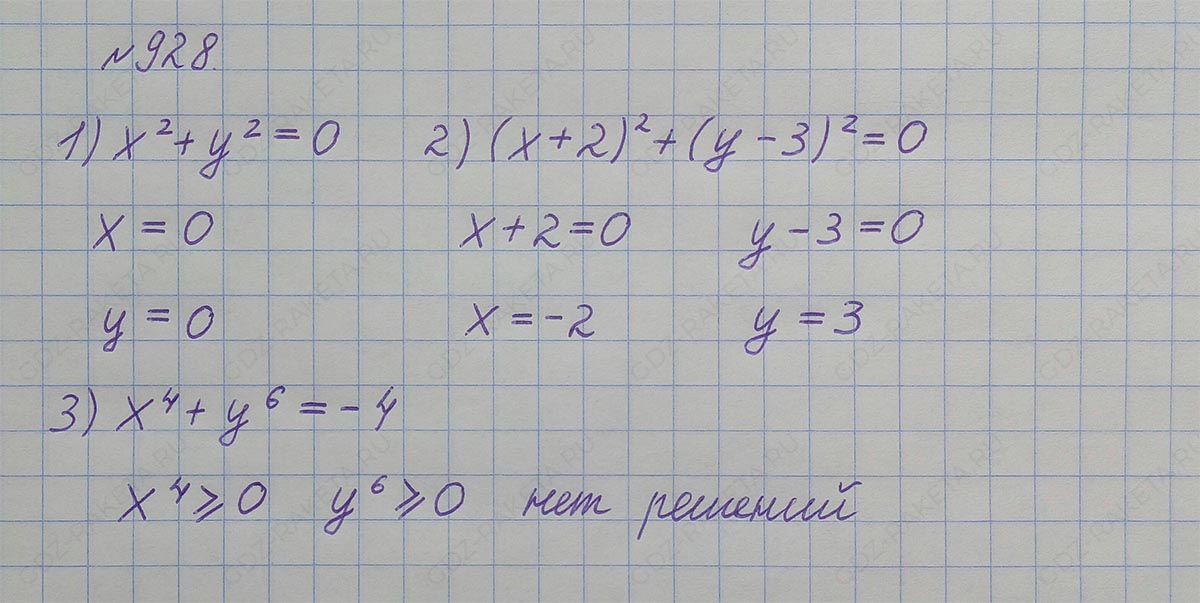 №928.
1) x² + y² = 0 2) (x + 2)² + (y − 3)² = 0
x = 0 x + 2 = 0 y − 3 = 0
y = 0 x = −2 y = 3
3) x⁴ + y⁶ = −4
x⁴ ⩾ 0 y⁶ ⩾ 0 нет решений
GDZ-RAKETA.RU